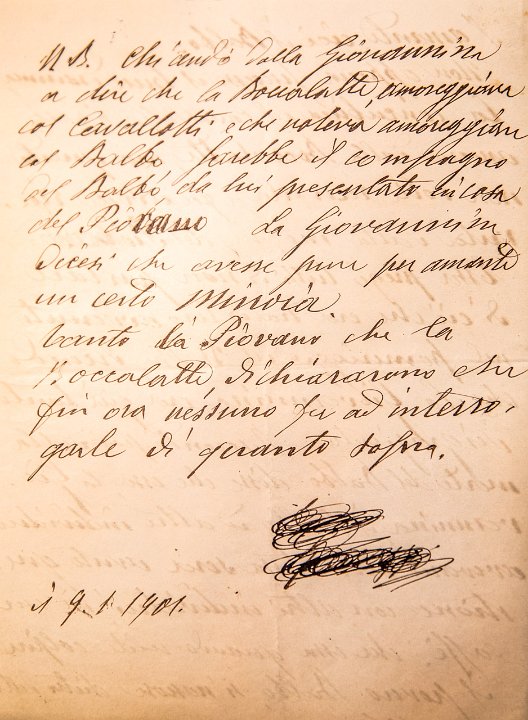 N B. Chi andò dalla Giovannina
a dire che la Boccalatte amoreggiava
col Cavallotti e che voleva amoreggiare
col Balbo sarebbe il compagno
del Balbo da lui presentato in casa
del Piovano La Giovannina
Dicesi che avesse pure per amante
un certo Minoia
tanto la Piovano che la
Boccalatte, dichiararono che
fin ora nessuno fu ad interro-
garle di quanto sopra.
li 9. 1. 1901.